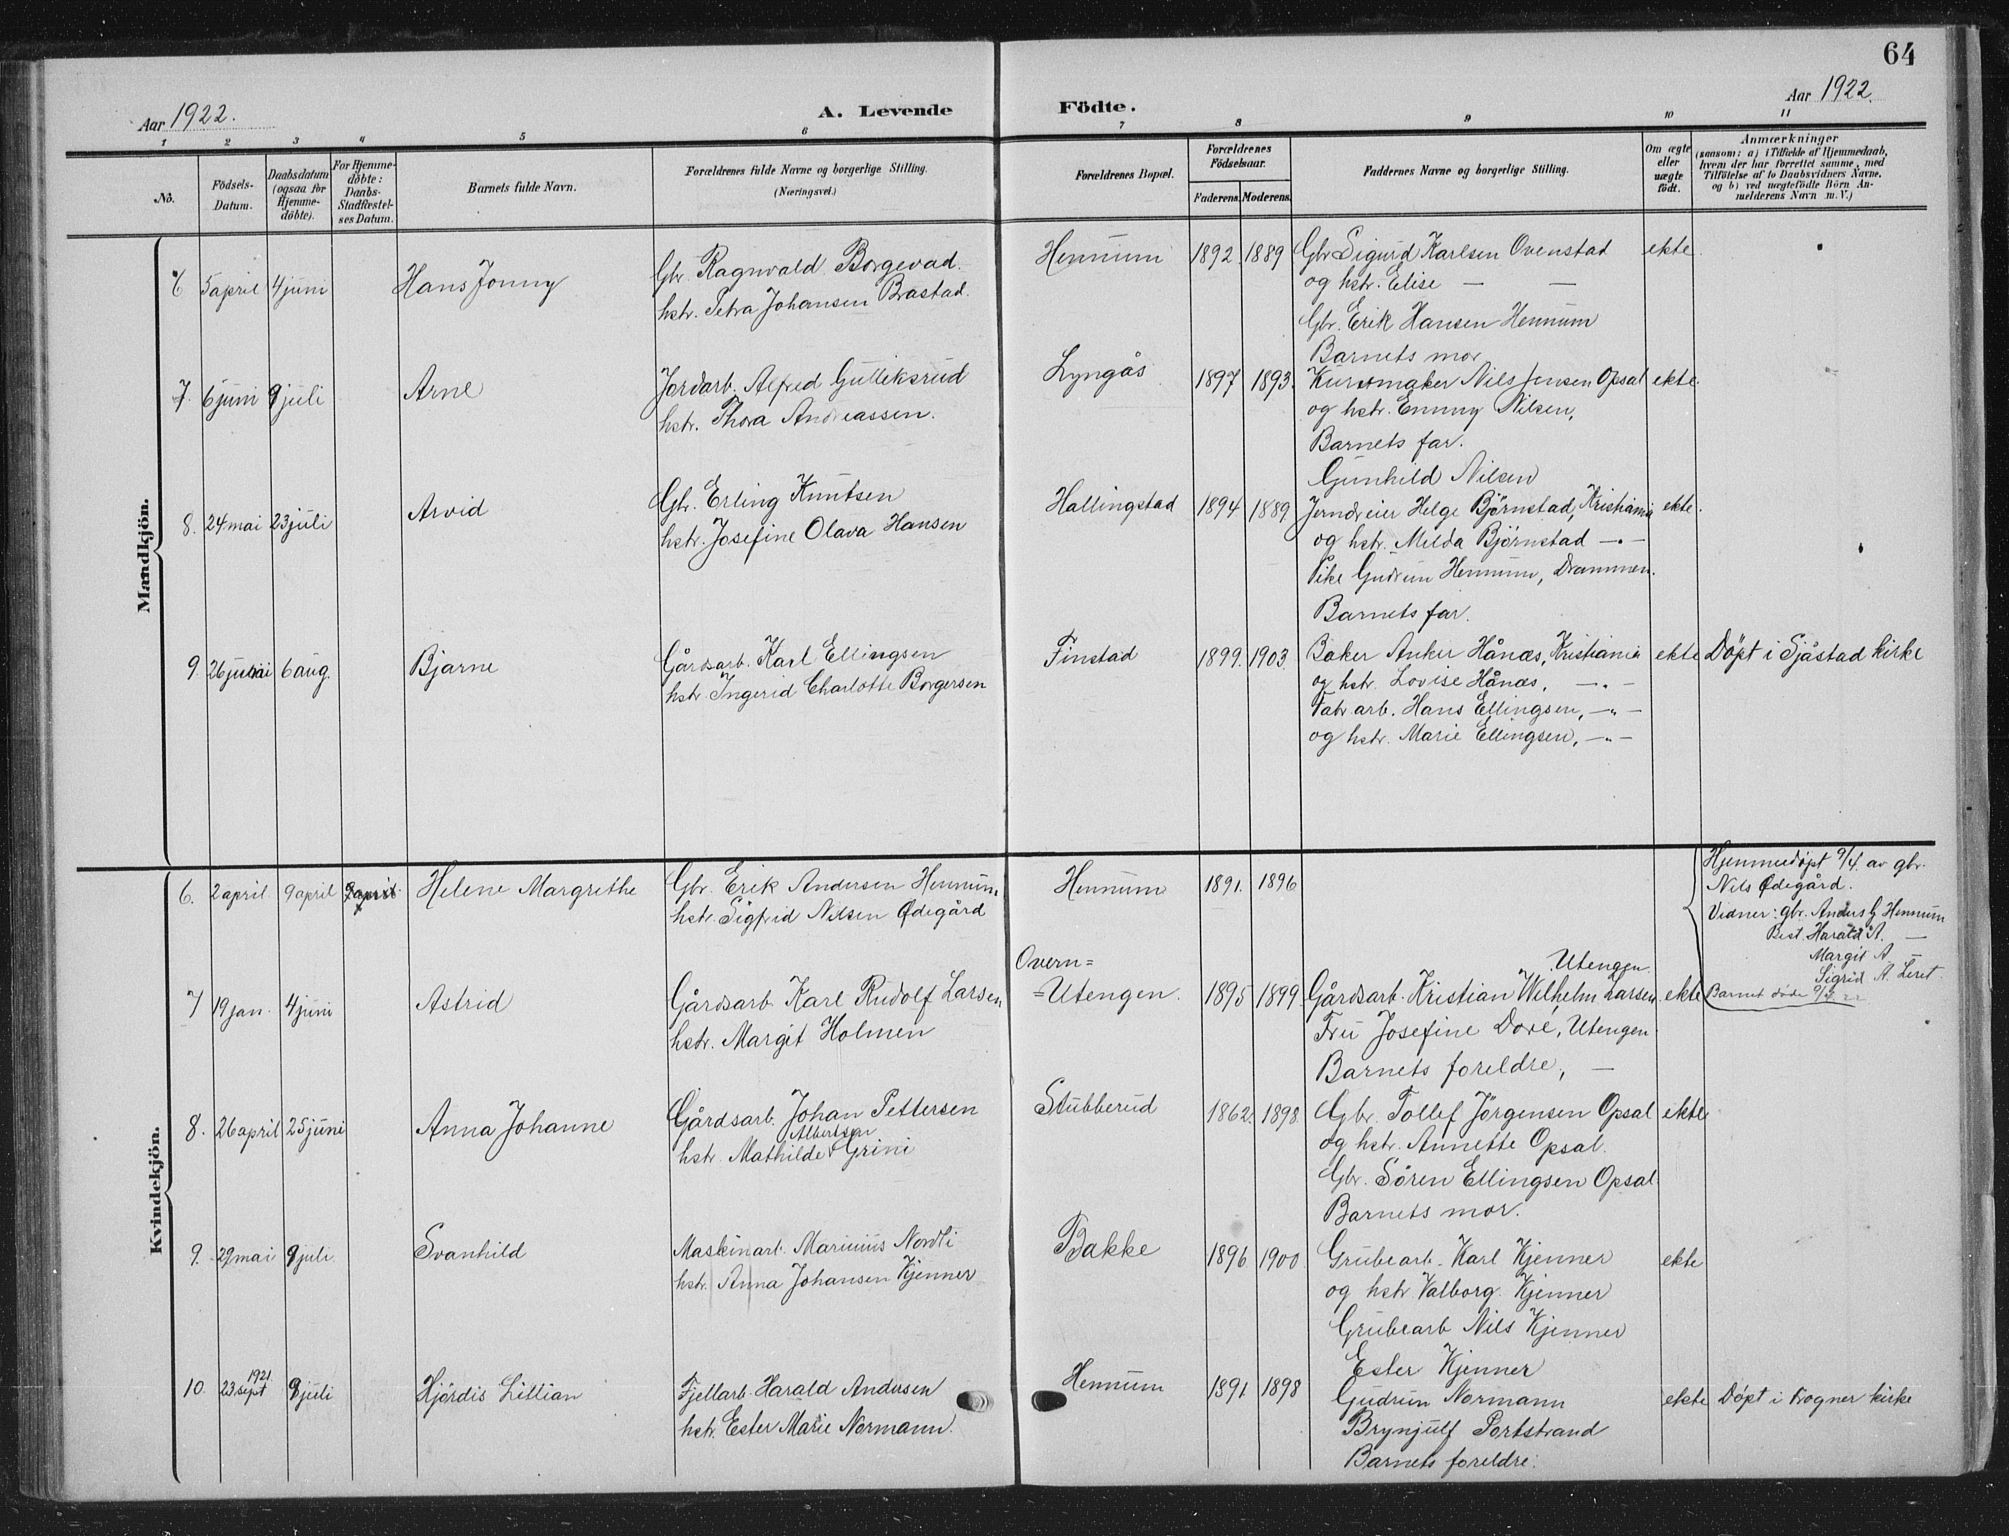 64
Aar 1922.
A. Levende Födte.
Aar 1922.
1 2 3 4 5 6 7 8 9 10 11
No.
Födsels-Datum.
Daabsdatum (ogsaa for Hjemme-döbte).
For Hjemme-döbte: Daabs-Stadfæstel-ses Datum.
Barnets fulde Navn.
Forældrenes fulde Navne og borgerlige Stilling.
(Næringsvei.)
Forældrenes Bopæl.
Forældrenes Födselsaar.
Faderens. Moderens.
Faddernes Navne og borgerlige Stilling.
Om ægte eller uægte födt.
Anmærkninger
(saasom: a) i Tilfælde af Hjemmedaab, hvem der har forrettet samme, med Tilföielse af to Daabsvidners Navne, og b) ved uægtefödte Börn An-melderens Navn m. V.)
Mandkjön.
6 5 april 4 juni Hans Jonny
Gbr. Ragnvald Borgevad.
hstr. Petra Johansen Brastad.
Hennum 1892 1889
Gbr Sigurd Karlsen Ovenstad ekte
og hstr. Elise — —
Gbr. Erik Hansen Hennum
Barnets mor
7. 6 juni 9 juli Arne
Jordarb. Alfred Gulliksrud
hstr. Thora Andreassen.
Lyngås 1897 1893.
Kurvmaker Nils Jensen Opsal ekte.
og hstr. Emmy Nilsen,
Barnets far.
Gunhild Nilsen
8. 24 mai 23 juli Arvid
Gbr. Erling Knutsen
hstr. Josefine Olava Hansen
Hallingstad 1894 1889
Jerndreier Helge Björnstad, Kristiania ekte.
og hstr. Milda Björnstad —"—
Pike Gudrun Hennum, Drammen.
Barnets far.
9. 26 6 aug. Bjarne
Gårdsarb. Karl Ellingsen
hstr. Ingerid Charlotte Borgersen
Finstad 1899. 1903.
Baker Anker Hånæs, Kristiania ekte Døpt i Sjåstad kirke
og hstr. Lovise Hånæs, —"—
Fabr arb. Hans Ellingsen, —"—
og hstr. Marie Ellingsen, —"—
Kvindekjön.
6. 2 april. 9 april 9 april Helene Margrethe
Gbr. Erik Andersen Hennum,
hstr. Sigfrid Nilsen Ødegård
Hennum 1891. 1896
Hjemmedøpt 9/4. av gbr.
Nils Ødegård.
Vidner: gbr. Anders G Hennum
Best. Harald A. —
Margit A —
Sigrid A.
Barnet døde
7 19 jan. 4 juni Astrid
Gårdsarb. Karl Rudolf Larsen
hstr. Margit Holmen
Overn=
=Utengen. 1895 1899
Utengen.
Gårdsarb. Kristian Wilhelm Larsen ekte
Fru Josefine Dore, Utengen
Barnets foreldre, —
8. 26 april 25 juni Anna Johanne
Gårdsarb. Johan Pettersen
Albertsen
hstr. Mathilde Grini
Stubberud 1862. 1898.
Gbr. Tollef Jörgensen Opsal ekte
og hstr. Annette Opsal.
Gbr. Sören Ellingsen Opsal
Barnets mor.
9. 29 mai 9 juli. Svanhild
Maskinarb. Marinius Nordli
hstr. Anna Johansen Kjenner
Bakke 1896 1900
Grubearb. Karl Kjenner ekte
og hstr Valborg Kjenner
Grubearb Nils Kjenner
Ester Kjenner
10. 23 sept 1921. 9 juli Hjördis Lillian
Fjellarb Harald Andersen
hstr. Ester Marie Normann.
Hennum 1891 1898
Gudrun Normann ekte Døpt i Frogner kirke
Brynjulf Portstrand
Barnets foreldre.